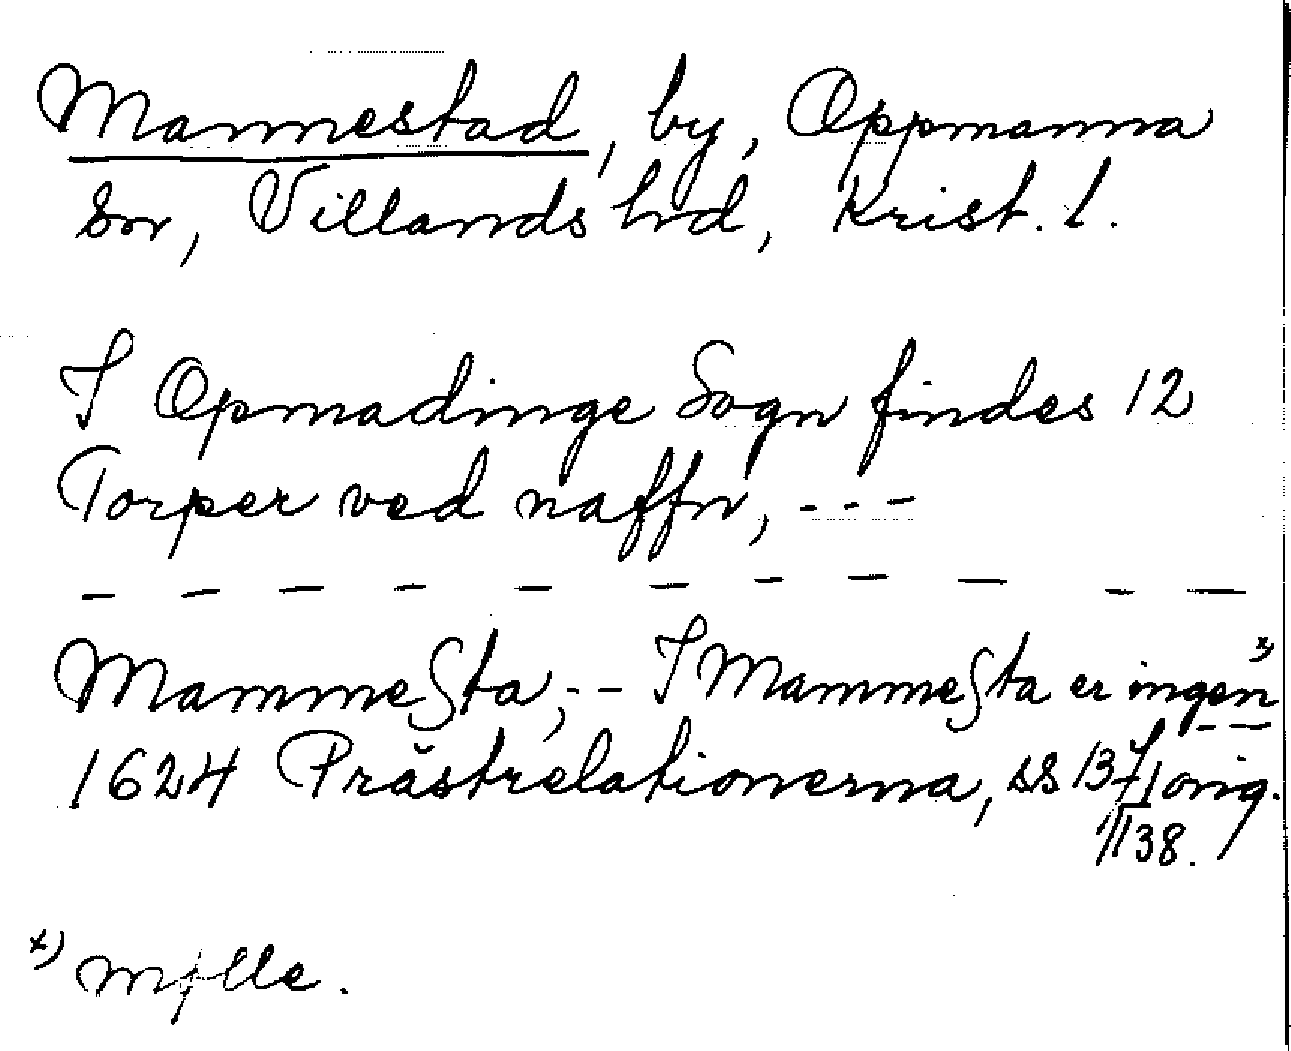 Mannestad, by, Oppmanna
sn, Villands hrd, Krist. l.
I Opmadinge Sogn findes 12
Torper ved naffn, ---
— — — — — — — — — — —
Mammeßta, -- I Mammeßta er ingen x)
1624 Prästrelationerna, ss 137/ orig.
138.
x) mølle.